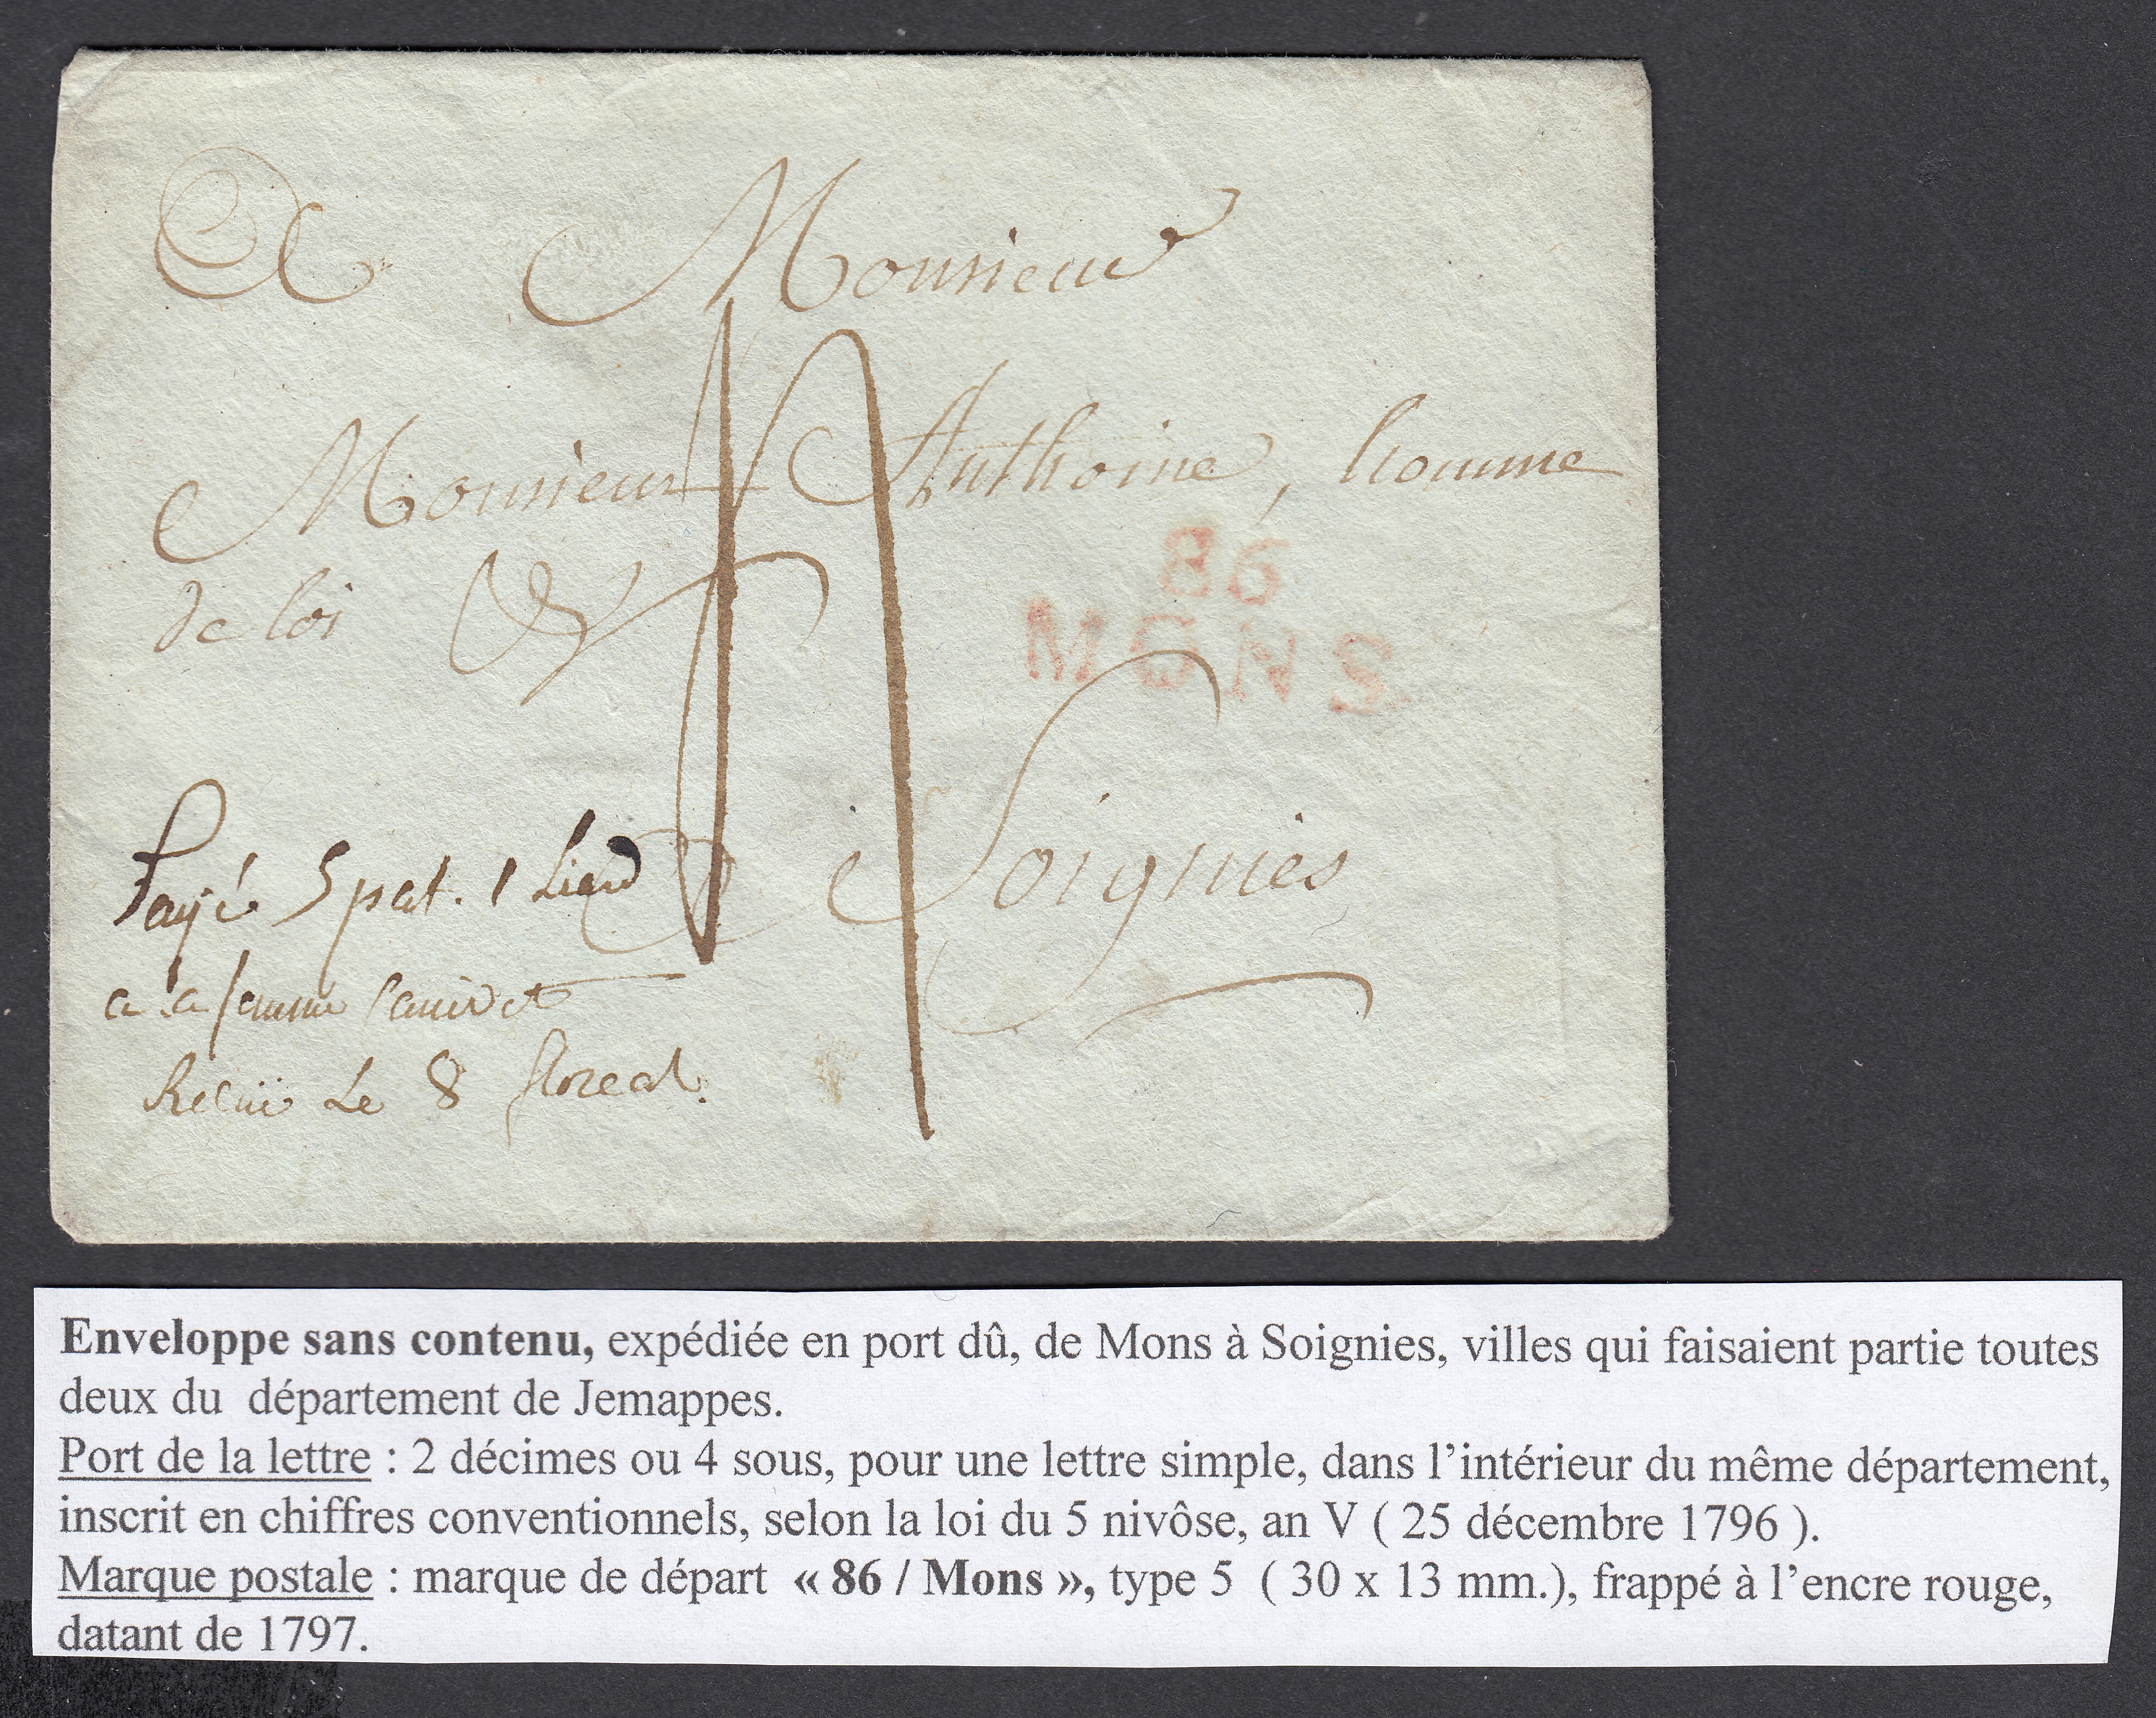 A Monsieur
Monsieur Anthoine, homme
de loi
86
MONS
Soignies
Payé 5 pat. 1 Liard
a la femme
Recüe Le 8 floreal.
Enveloppe sans contenu, expédiée en port dû, de Mons à Soignies, villes qui faisaient partie toutes
deux du département de Jemappes.
Port de la lettre : 2 décimes ou 4 sous, pour une lettre simple, dans l’intérieur du même département,
inscrit en chiffres conventionnels, selon la loi du 5 nivôse, an V ( 25 décembre 1796 ).
Marque postale : marque de départ « 86 / Mons », type 5 ( 30 x 13 mm.), frappé à l’encre rouge,
datant de 1797.